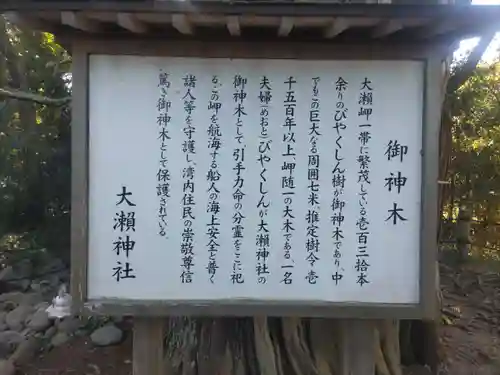 御神木
大瀬岬一帯に繁茂している壱百三拾本
余りのびやくしん樹が御神木であり、中
でもこの巨大なる周囲七米、推定樹令壱
千五百年以上、岬随一の大木である、一名
夫婦(めおと)びやくしんが大瀬神社の
御神木として、引手力命の分霊をここに祀
る、この岬を航海する船人の海上安全と普く
諸人等を守護し、湾内住民の崇敬尊信
篤き御神木として保護されている、
大瀬神社